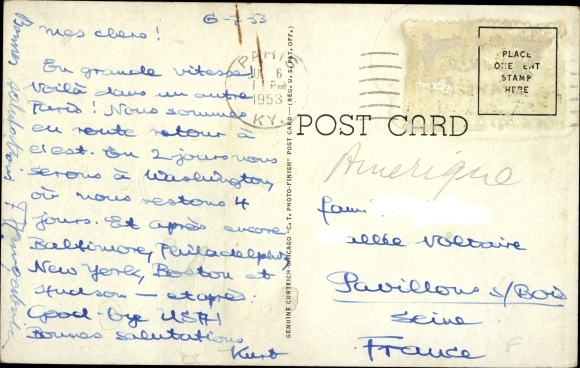 6-7-53
Mes chers!
En grande vitesse
Voilà dans un autre
Paris! Nous sommes
en route retour à
l'est. En 2 jours nous
serons à Washington,
où nous restons 4
jours. Et après encore
Baltimore, Philadelphia
New York, Boston et
Hudson — et après.
Good bye USA!
Bonnes salutations
Kurt
Bonnes salutations
PARIS
6
PM
1953
KY.
GENUINE CURTEICH-CHICAGO "C. T. PHOTO-FINISH" POST CARD—(REG. U.S. PAT. OFF.)
PLACE
ONE CENT
STAMP
HERE
POST CARD
Amerique
fami
allée Voltaire
Pavillons s/Bois
Seine
France